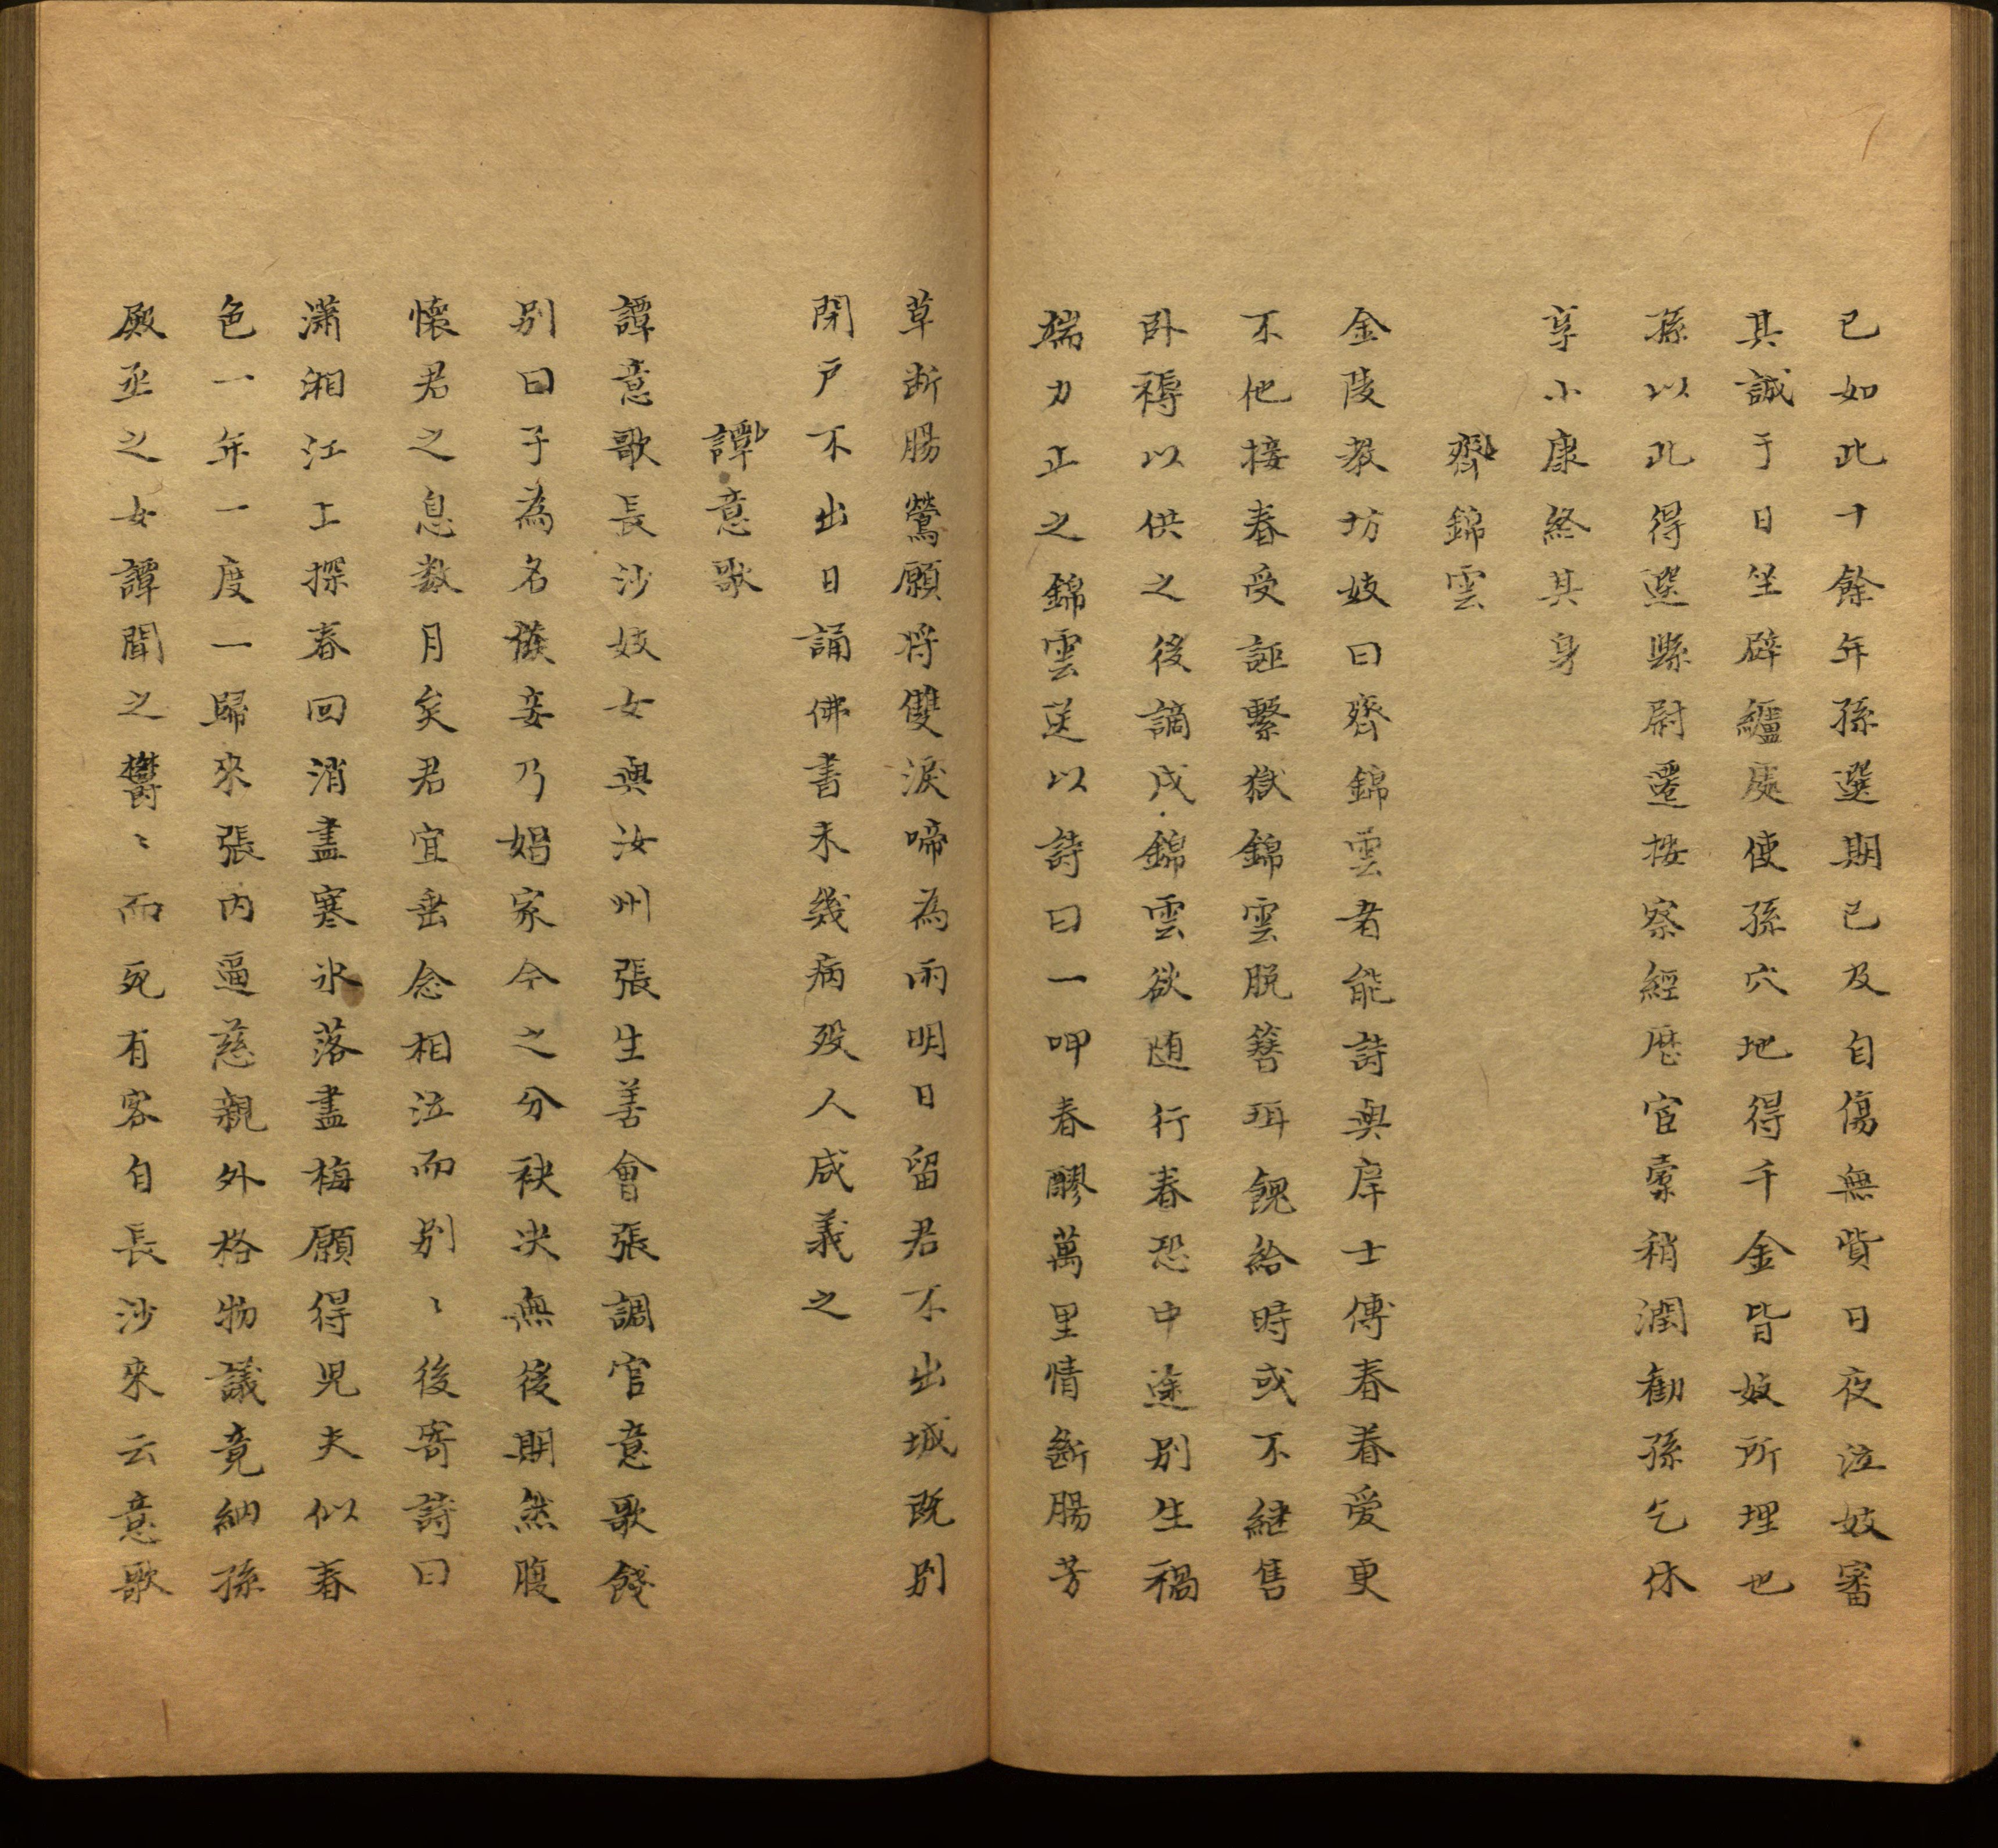 已如此十餘年孫選期已及自傷無貲日夜泣妓審
其誠于日坐辟纑處使孫穴地得千金皆妓所埋也
孫以此得選縣尉遷按察經歷宦橐稍潤勸孫乞休
享小康終其身
齊錦雲
金陵教坊妓曰齊錦雲者能詩與庠士傅春春愛更
不他接春受誣繫獄錦雲脫簪珥餽給時或不継售
卧褥以供之後謫戍錦雲欲随行春恐中途别生禍
端力止之錦雲送以詩曰一呷春醪萬里情斷腸芳
草断腸鶯願将雙淚啼為雨明日留君不出城既别
閉戸不出日誦佛書未幾病殁人咸義之
譚意歌
譚意歌長沙妓女與汝州張生善會張調官意歌餞
别曰子為名族妾乃娼家今之分袂决無後期然腹
懷君之息数月矣君宜垂念相泣而别〻後寄詩曰
瀟湘江上探春回消盡寒氷落盡梅願得児夫似春
色一年一度一歸來張内逼慈親外格物議竟納孫
殿丞之女譚聞之鬱〻而死有客自長沙來云意歌